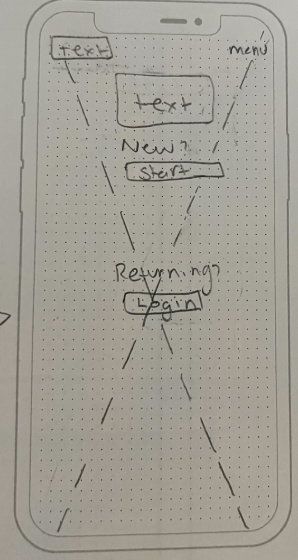 text
menu
text
New?
Start
Returning?
Login